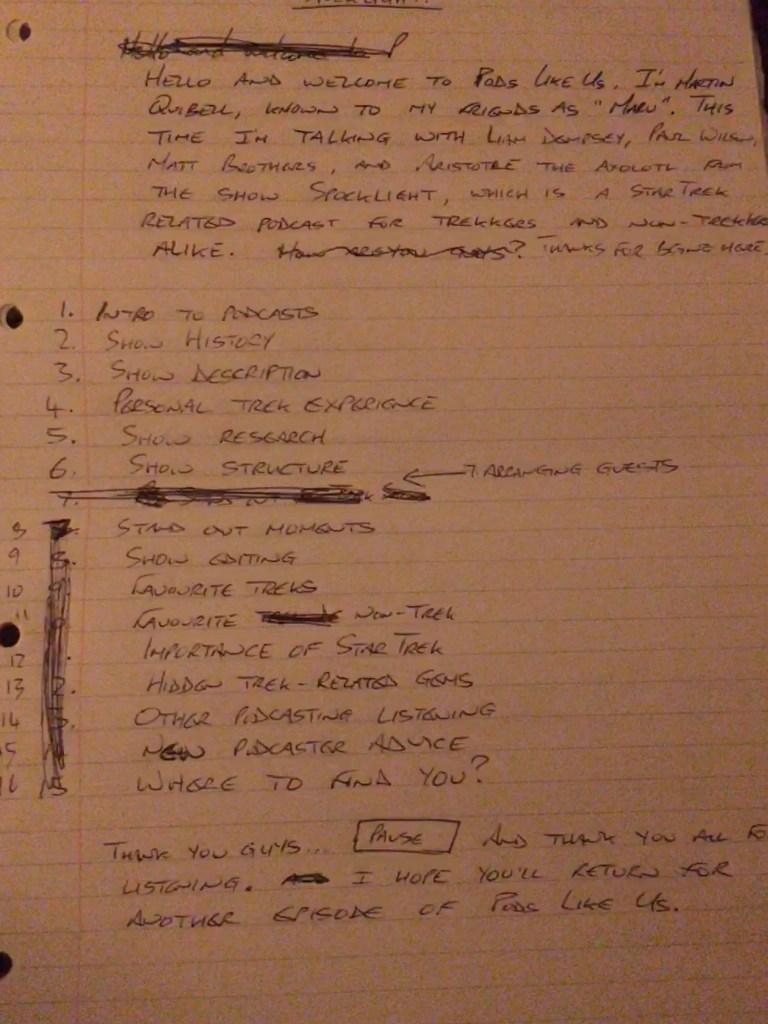 SPOCKLIGHT.
Hello and welcome to P
HELLO AND WELCOME TO PODS LIKE US. I'M MARTIN
QUIBELL, KNOWN TO MY FRIENDS AS "MARV". THIS
TIME I'M TALKING WITH LIAM DEMPSEY, PAUL WILSON,
MATT BROTHERS, AND ARISTOTLE THE AXOLOTL FROM
THE SHOW SPOCKLIGHT, WHICH IS A STAR TREK
RELATED PODCAST FOR TREKKERS AND NON-TREKKERS
ALIKE. HOW ARE YOU GUYS? THANKS FOR BEING HERE.
1. INTRO TO PODCASTS
2. SHOW HISTORY
3. SHOW DESCRIPTION
4. PERSONAL TREK EXPERIENCE
5. SHOW RESEARCH
6. SHOW STRUCTURE
7. ARRANGING GUESTS
7.
8 STAND OUT MOMENTS
9 SHOW EDITING
10 FAVOURITE TREKS
11 FAVOURITE NON-TREK
12 IMPORTANCE OF STAR TREK
13 HIDDEN TREK-RELATED GEMS
14 OTHER PODCASTING LISTENING
15 NEW PODCASTER ADVICE
16 WHERE TO FIND YOU?
THANK YOU GUYS... PAUSE AND THANK YOU ALL FO
LISTENING. I HOPE YOU'LL RETURN FOR
ANOTHER EPISODE OF PODS LIKE US.